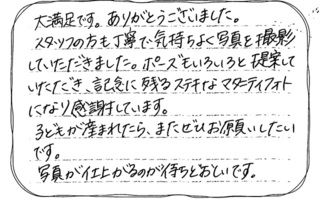 大満足です。ありがとうございました。
スタッフの方も丁寧で気持ちよく写真を撮影
していただきました。ポーズもいろいろと提案して
いただき、記念に残るステキなマタニティフォト
になり感謝しています。
子どもが産まれたら、またぜひお願いしたい
です。
写真が仕上がるのが待ちどおしいです。